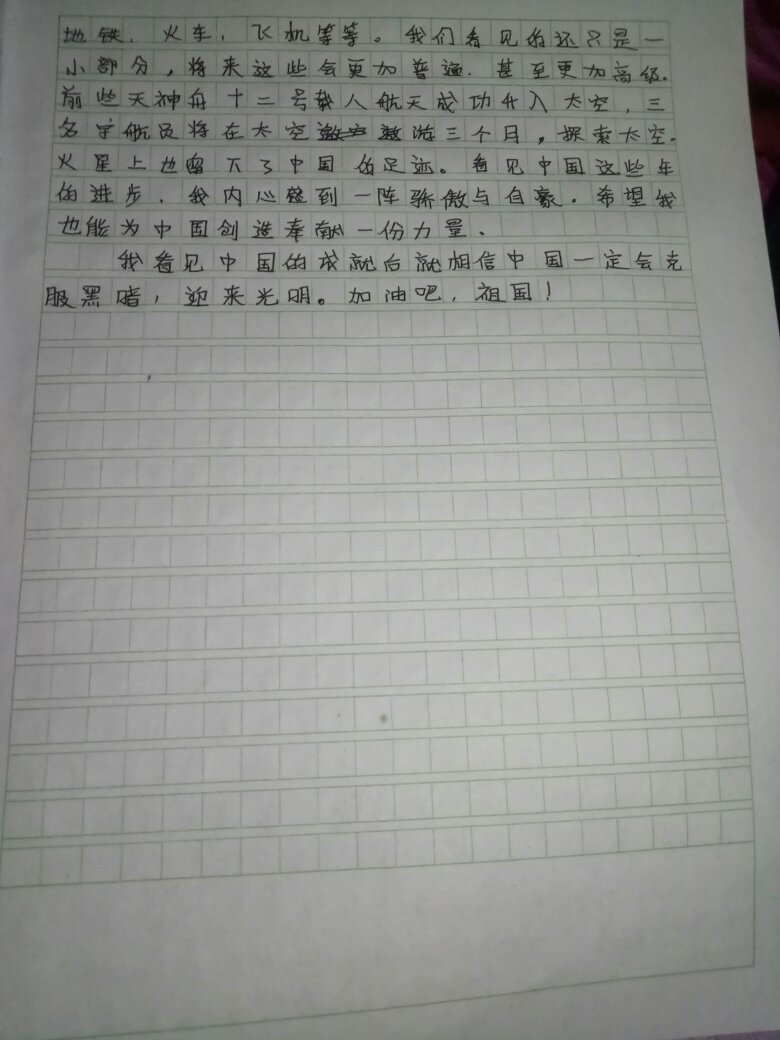 地铁，火车，飞机等等。我们看见的还只是一
小部分，将来这些会更加普遍，甚至更加高级。
前些天神舟十二号载人航天成功升入太空，三
名宇航员将在太空遨游三个月，探索太空。
火星上也留下了中国的足迹。看见中国这些年
的进步，我内心感到一阵骄傲与自豪。希望我
也能为中国创造奉献一份力量。
我看见中国的成就后就相信中国一定会克
服黑暗，迎来光明。加油吧，祖国！